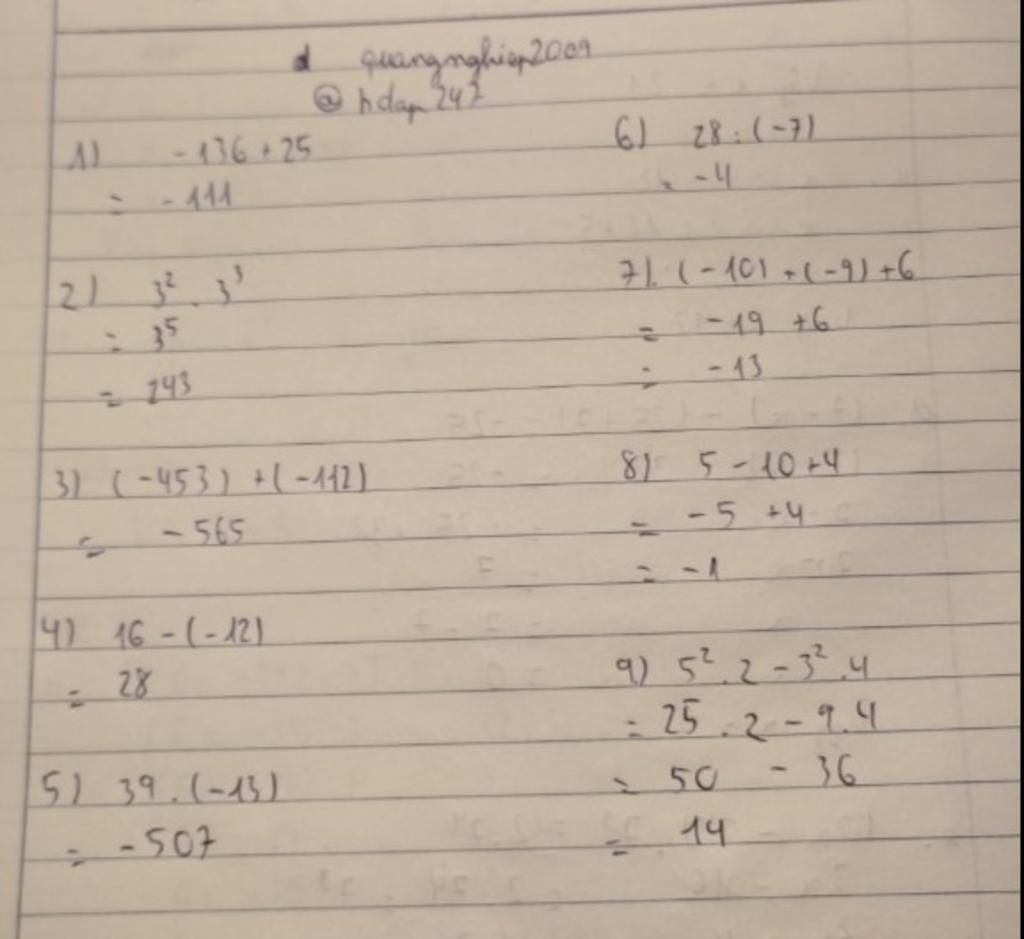 quangnghiep2009
@hdap 247
1) -136 + 25
= -111
2) 3² . 3³
= 3⁵
= 243
3) (-453) + (-112)
= -565
4) 16 - (-12)
= 28
5) 39 . (-13)
= -507
6) 28 : (-7)
= -4
7) (-10) + (-9) + 6
= -19 + 6
= -13
8) 5 - 10 + 4
= -5 + 4
= -1
9) 5² . 2 - 3² . 4
= 25 . 2 - 9 . 4
= 50 - 36
= 14